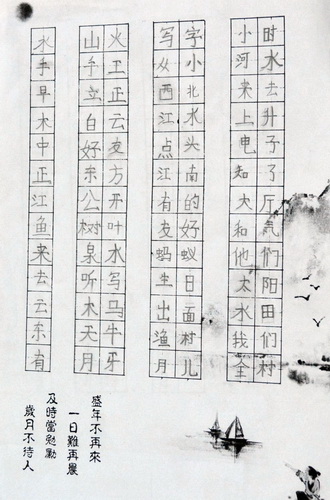 时水去升子了厅气们阳田们村
小河来上电知大和他太水我全
字小北水头南的好蚁日面村儿
写从西江点江有友蚂生出渔月
火工正云友方开叶水写马牛牙
山子立白好东公树泉听木天月
水手早木中正江鱼来去云东有
盛年不再來
一日難再晨
及時當勉勵
歲月不待人